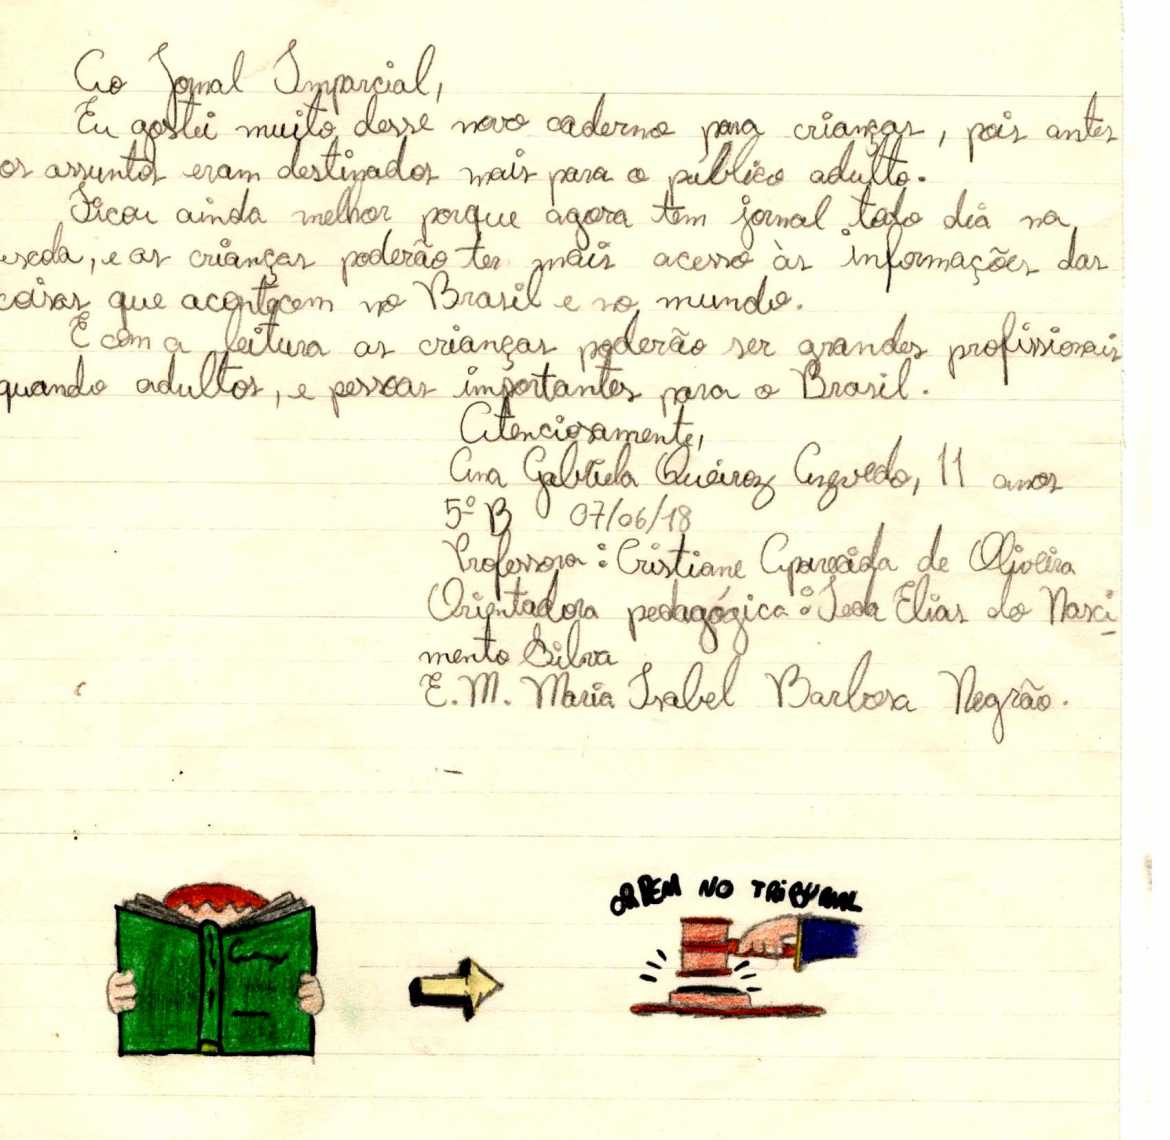 Ao Jornal Imparcial,
Eu gostei muito desse novo caderno para crianças, pois antes
os assuntos eram destinados mais para o público adulto.
Ficou ainda melhor porque agora tem jornal todo dia na
escola, e as crianças poderão ter mais acesso às informações das
coisas que acontecem no Brasil e no mundo.
E com a leitura as crianças poderão ser grandes profissionais
quando adultos, e pessoas importantes para o Brasil.
Atenciosamente,
Ana Gabriela Queiroz Azevedo, 11 anos
5º B 07/06/18
Professora: Cristiane Aparecida de Oliveira
Orientadora pedagógica: Ieda Elias do Nasci-
mento Silva
E. M. Maria Isabel Barbosa Negrão.
ORDEM NO TRIBUNAL